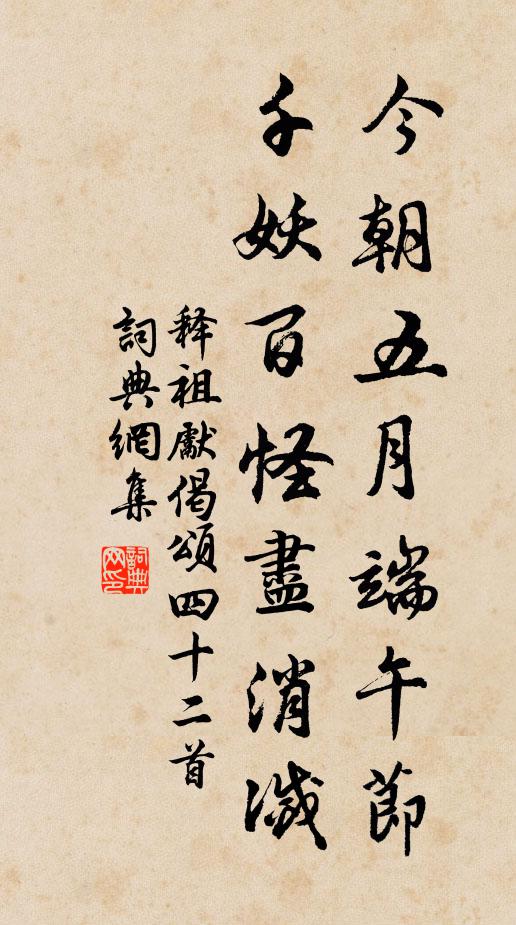 今朝五月端午節
千妖百怪盡消滅
释祖獻偈頌四十二首
詞典網集
詞典网印